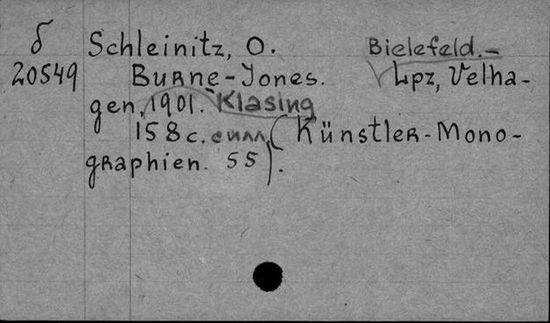 б Schleinitz, O. Bielefeld.-
20549 Burne-Jones. Lpz, Velha-
gen, 1901. Klasing
158 с. с илл. (Künstler-Mono-
graphien. 55).